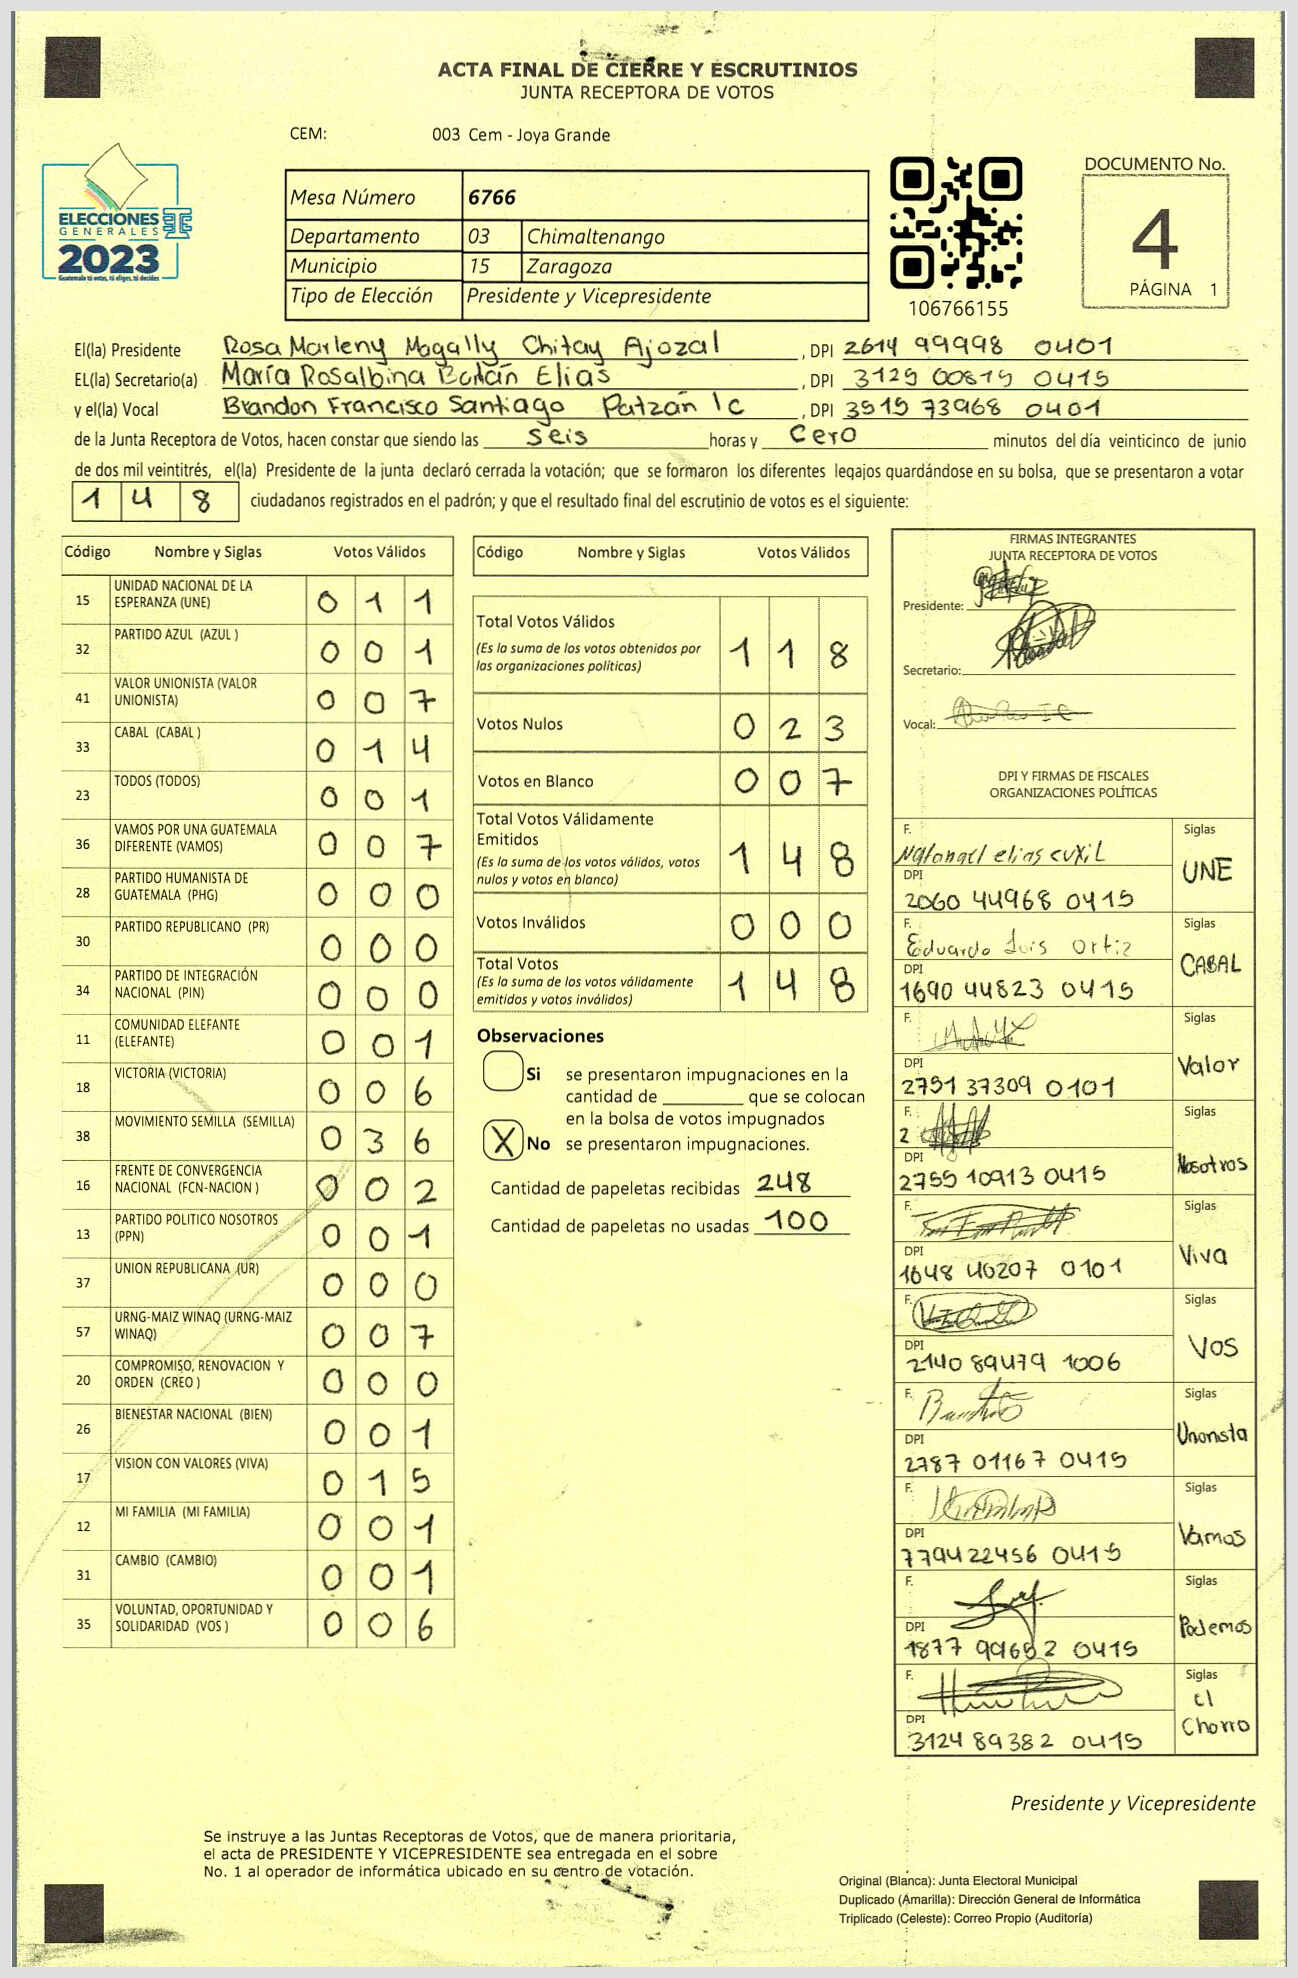 ACTA FINAL DE CIERRE Y ESCRUTINIOS
JUNTA RECEPTORA DE VOTOS
CEM: 003 Cem - Joya Grande
ELECCIONES
GENERALES
2023
Guatemala tú votas, tú eliges, tú decides
Mesa Número 6766
Departamento 03 Chimaltenango
Municipio 15 Zaragoza
Tipo de Elección Presidente y Vicepresidente
106766155
DOCUMENTO No.
4
PÁGINA 1
El(la) Presidente Rosa Marleny Magally Chitay Ajozal , DPI 2614 99998 0401
EL(la) Secretario(a) María Rosalbina Elias , DPI 3125 00819 0415
y el(la) Vocal Brandon Francisco Santiago Patzán Ic , DPI 3515 73968 0401
de la Junta Receptora de Votos, hacen constar que siendo las seis horas y cero minutos del día veinticinco de junio
de dos mil veintitrés, el(la) Presidente de la junta declaró cerrada la votación; que se formaron los diferentes legajos quardándose en su bolsa, que se presentaron a votar
1 4 8 ciudadanos registrados en el padrón; y que el resultado final del escrutinio de votos es el siguiente:
Código Nombre y Siglas Votos Válidos
15 UNIDAD NACIONAL DE LA ESPERANZA (UNE) 0 1 1
32 PARTIDO AZUL (AZUL ) 0 0 1
41 VALOR UNIONISTA (VALOR UNIONISTA) 0 0 7
33 CABAL (CABAL ) 0 1 4
23 TODOS (TODOS) 0 0 1
36 VAMOS POR UNA GUATEMALA DIFERENTE (VAMOS) 0 0 7
28 PARTIDO HUMANISTA DE GUATEMALA (PHG) 0 0 0
30 PARTIDO REPUBLICANO (PR) 0 0 0
34 PARTIDO DE INTEGRACIÓN NACIONAL (PIN) 0 0 0
11 COMUNIDAD ELEFANTE (ELEFANTE) 0 0 1
18 VICTORIA (VICTORIA) 0 0 6
38 MOVIMIENTO SEMILLA (SEMILLA) 0 3 6
16 FRENTE DE CONVERGENCIA NACIONAL (FCN-NACION ) 0 0 2
13 PARTIDO POLITICO NOSOTROS (PPN) 0 0 1
37 UNION REPUBLICANA (UR) 0 0 0
57 URNG-MAIZ WINAQ (URNG-MAIZ WINAQ) 0 0 7
20 COMPROMISO, RENOVACION Y ORDEN (CREO ) 0 0 0
26 BIENESTAR NACIONAL (BIEN) 0 0 1
17 VISION CON VALORES (VIVA) 0 1 5
12 MI FAMILIA (MI FAMILIA) 0 0 1
31 CAMBIO (CAMBIO) 0 0 1
35 VOLUNTAD, OPORTUNIDAD Y SOLIDARIDAD (VOS ) 0 0 6
Código Nombre y Siglas Votos Válidos
Total Votos Válidos 1 1 8
(Es la suma de los votos obtenidos por
las organizaciones políticas)
Votos Nulos 0 2 3
Votos en Blanco 0 0 7
Total Votos Válidamente
Emitidos 1 4 8
(Es la suma de los votos válidos, votos
nulos y votos en blanco)
Votos Inválidos 0 0 0
Total Votos 1 4 8
(Es la suma de los votos válidamente
emitidos y votos inválidos)
Observaciones
Si se presentaron impugnaciones en la
cantidad de ________ que se colocan
en la bolsa de votos impugnados
X No se presentaron impugnaciones.
Cantidad de papeletas recibidas 248
Cantidad de papeletas no usadas 100
FIRMAS INTEGRANTES
JUNTA RECEPTORA DE VOTOS
Presidente:
Secretario:
Vocal:
DPI Y FIRMAS DE FISCALES
ORGANIZACIONES POLÍTICAS
F. Natanael elias cuxil Siglas
DPI UNE
2060 44968 0415
F. Eduardo Luis Ortiz Siglas
DPI CABAL
1690 44823 0415
F. Siglas
DPI Valor
2751 37309 0101
F. Siglas
DPI Nosotros
2755 10913 0415
F. Siglas
DPI Viva
1648 40207 0101
F. Siglas
DPI VOS
2140 89479 1006
F. Siglas
DPI Unonista
2787 01167 0415
F. Siglas
DPI Vamos
779422456 0415
F. Siglas
DPI Podemos
1877 99652 0415
F. Siglas
DPI el Chorro
3124 89382 0415
Presidente y Vicepresidente
Se instruye a las Juntas Receptoras de Votos, que de manera prioritaria,
el acta de PRESIDENTE Y VICEPRESIDENTE sea entregada en el sobre
No. 1 al operador de informática ubicado en su centro de votación.
Original (Blanca): Junta Electoral Municipal
Duplicado (Amarilla): Dirección General de Informática
Triplicado (Celeste): Correo Propio (Auditoría)